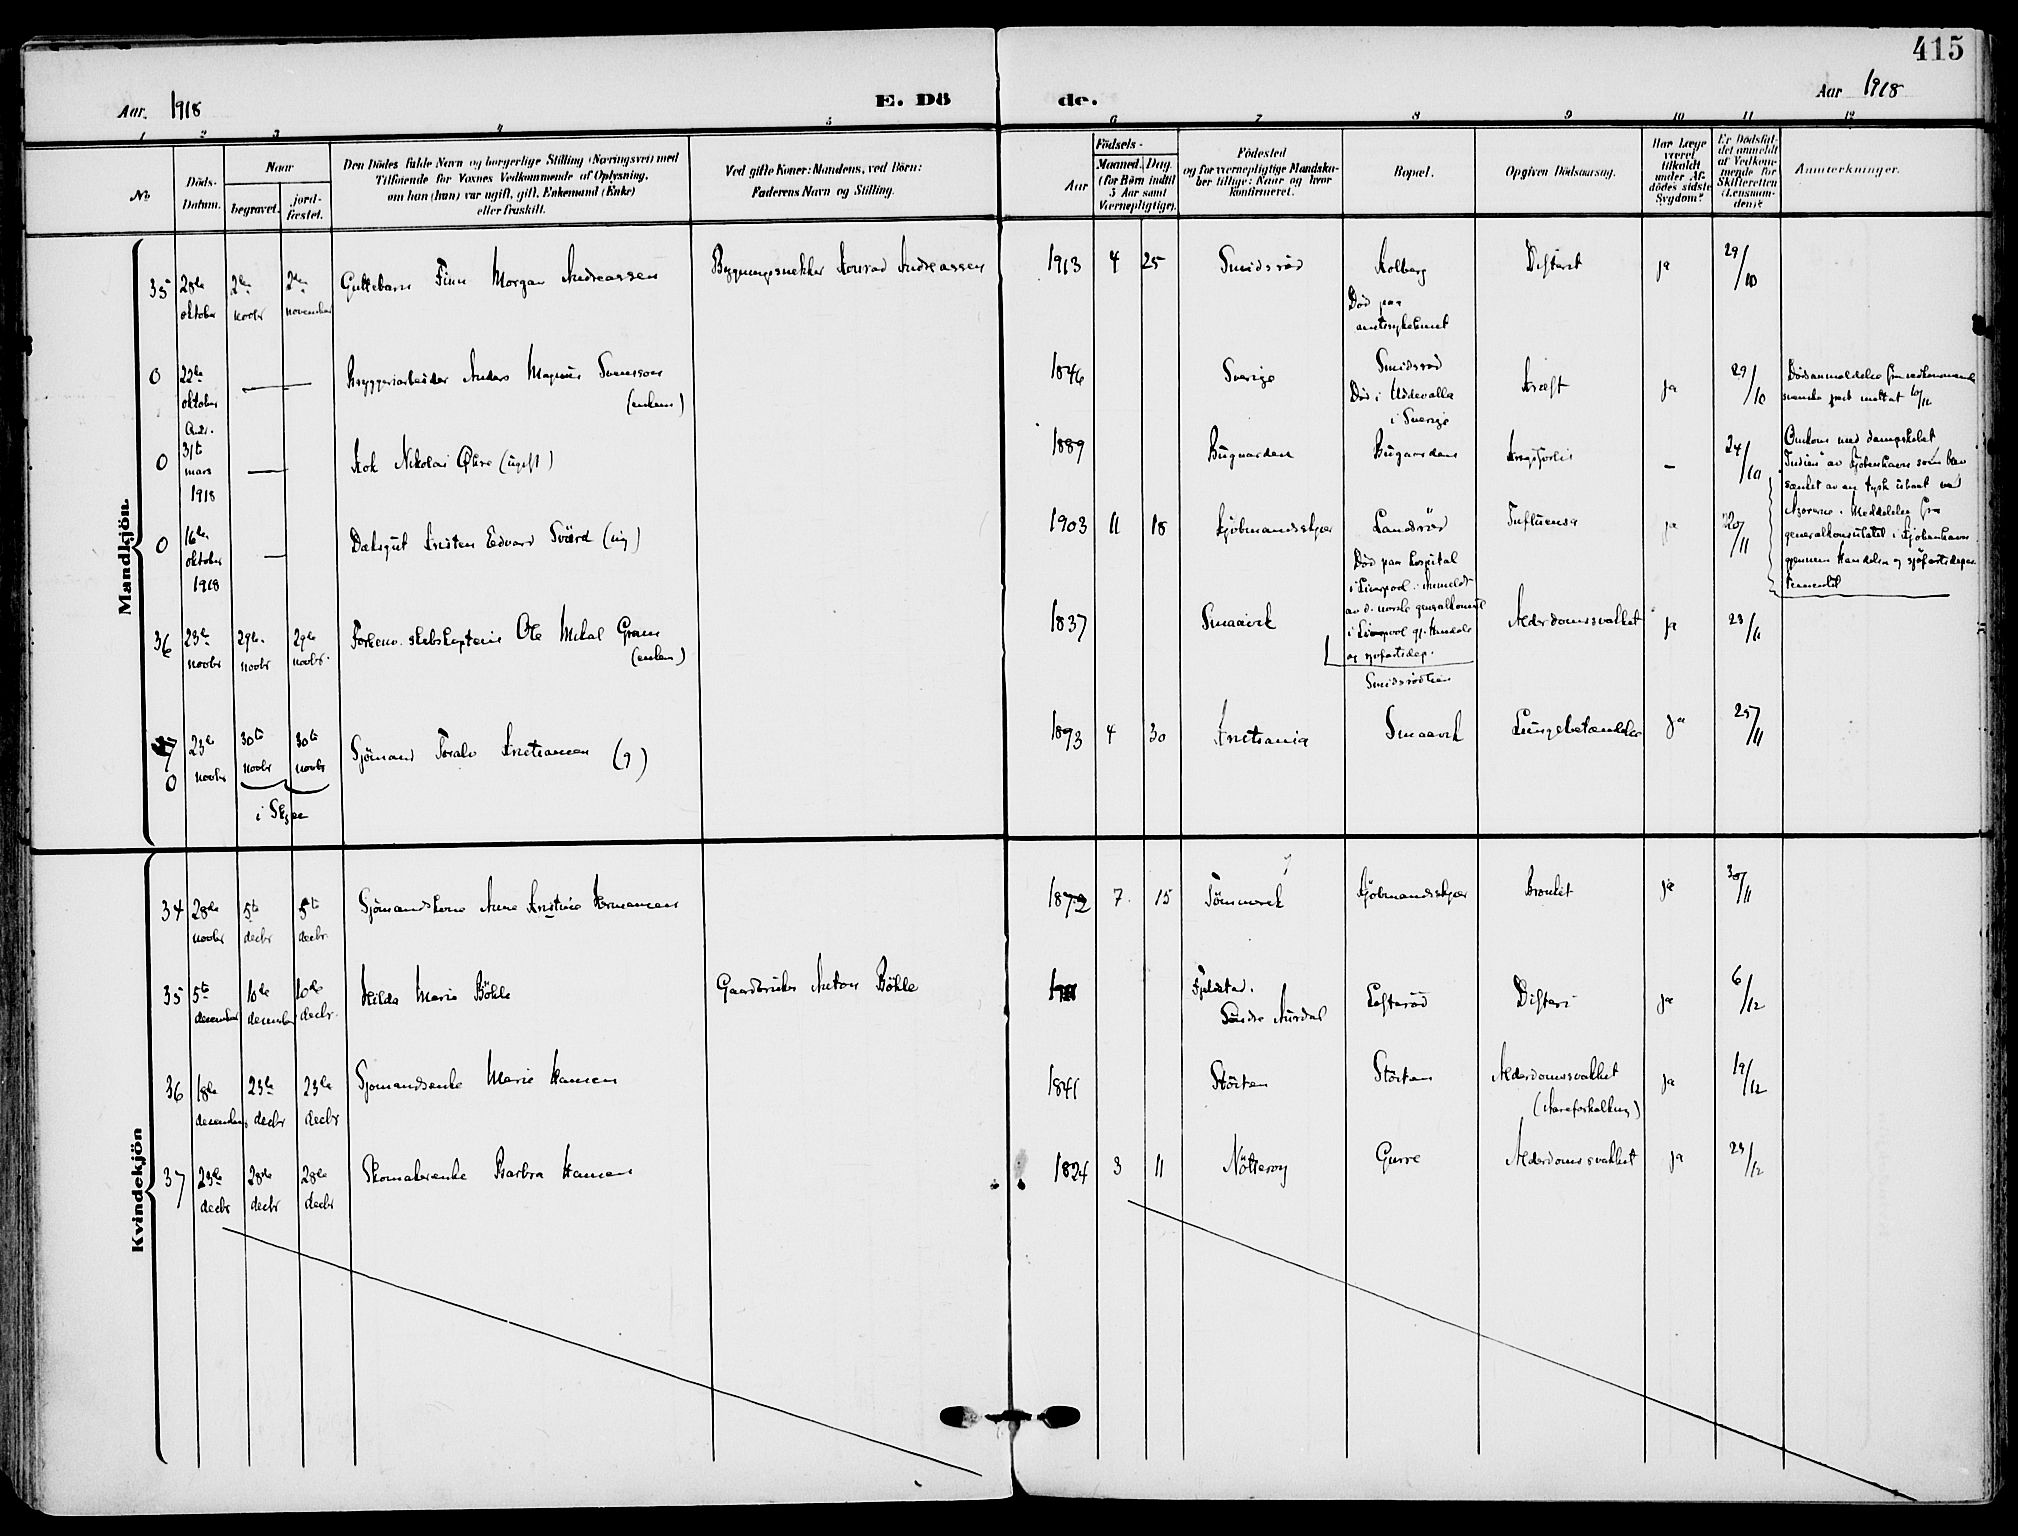 415
Aar. 1918
E. Dö
de.
Aar 1918
1 2 3 4 5 6 7 8 9 10 11 12
No
Döds-
Datum.
Naar
begravet.
jord-
fæstet.
Den Dödes fulde Navn og borgerlige Stilling (Næringsvei) med
Tilföiende for Voxnes Vedkommende af Oplysning,
om han (hun) var ugift, gift, Enkemand (Enke)
eller fraskilt.
Ved gifte Koner: Mandens, ved Börn:
Faderens Navn og Stilling.
Födsels-
Aar
Maaned. Dag.
(for Børn indtil
5 Aar samt
Værnepligtige).
Födested
og for værnepligtige Mandska-
ber tillige: Naar og hvor
konfirmeret.
Bopæl.
Opgiven Dödsaarsag.
Har Læge
været
tilkaldt
under Af-
dödes sidste
Sygdom?
Er Dödsfal-
det anmeldt
af Vedkom-
mende for
Skifteretten
(Lensman-
den)?
Anmærkninger.
Mandkjön.
35 28de oktober 2den novbr 2den november Guttebarn Finn Morgan Andreassen Bygningssnekker Konrad Andreassen 1913 4 25 Smidsrød Solberg Difterit ja 29/10
Død paa
amtssykehuset
0 22de oktober Bryggeriarbeider Anders Magnus Svensson 1846 Sverige Smidsrød Kræft ja 29/10 Dødsanmeldelse fra vedkommende
(enkem)
Død i Uddevalla
i Sverige
svenske prest mottat
0 31te mars 1918 Kok Nikolai Øhre (ugift) 1889 Bugaarden Bugaarden Krigsforlis - 24/10 Omkom med dampskibet
"Indien" av Kjøbenhavn som blev
sænket av en tysk ubaat ved
Azorerne. Meddelelse fra
generalkonsulatet i Kjøbenhavn
gjennem Handels og sjøfartsdepar
tementet
0 16de oktober 1918 Dæksgut Kristen Edvard Sviërd (ug) 1903 11 18 Kjøbmandsskjær Landsrød Influensa ja 20/11
Død paa hospital
i Liverpool. Anmeldt
av d. norske generalkonsul
i Liverpool gj. Handels
og sjøfartsdep.
36 23de novbr 29de novbr 29de novbr. Forhenv. skibskaptein Ole Mikal Gram 1837 Smaavik Alderdomssvakhet ja 23/11
(enkem)
Smidsrødveien
37 0 23de novbr 30te novbr 30te novbr Sjømand Toralv Kristiansen (g) 1893 4 30 Kristiania Smaavik Lungebetændelse ja 25/11
i Skjee
Kvindekjön
34 28de novbr 5te decbr 5te decbr Sjømandskone Anne Kristine Hermansen 1872 7. 15 Tømmervik Kjøbmandsskjær Bronkit ja 30/11
35 5te december 10de december 10de decbr. Hilda Marie Böhle Gaardbruker Anton Böhle 1911 Söndre Aurdal Lofterød Difteri ja 6/12
36 18de december 23de decbr 23de decbr Sjömandsenke Marie Hansen 1841 Störten Störten Alderdomssvakhet ja 19/12
(Aareforkalkning)
37 23de decbr 28de decbr 28de decbr Skomakerenke Barbra Hansen 1824 3 11 Nötteröy Gurre Alderdomssvakhet ja 23/12